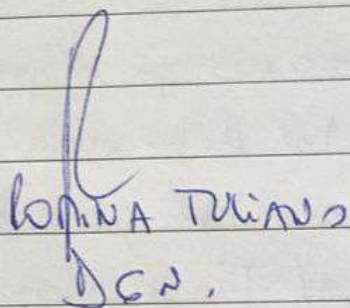 Romina Tuliano
DGN.